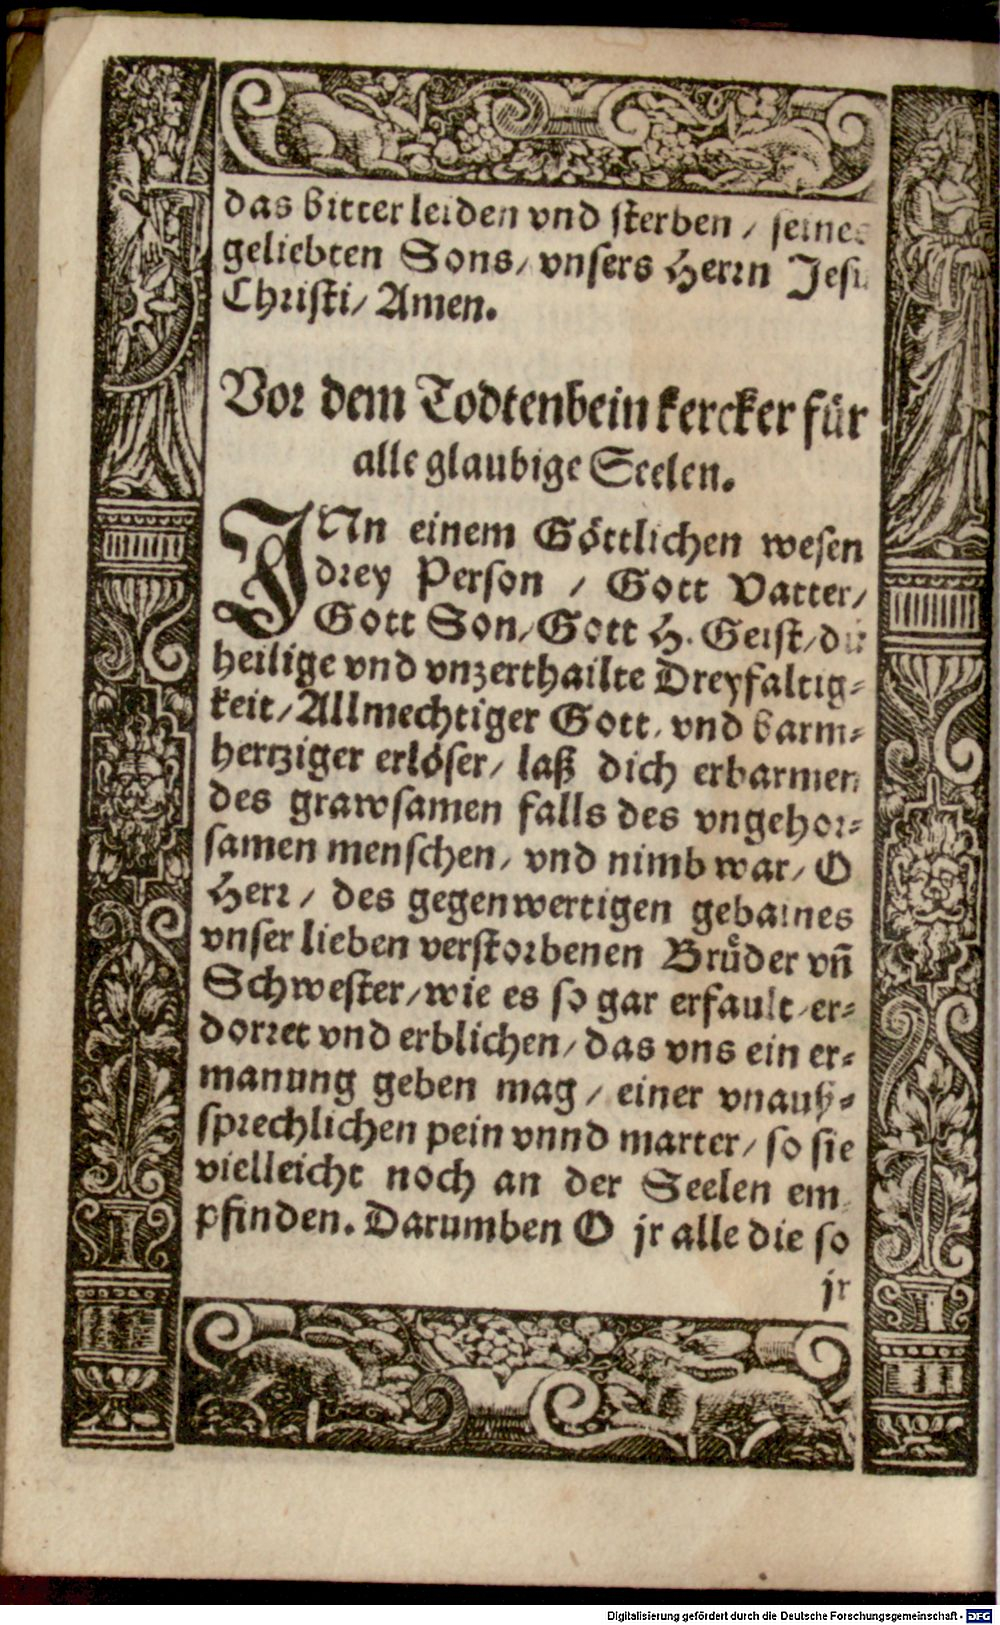 das bitter leiden vnd sterben / seines
geliebten Sons / vnsers Herrn Jesu
Christi / Amen.
Vor dem Todtenbein kercker für
alle glaubige Seelen.
JNn einem Göttlichen wesen
drey Person / Gott Vatter /
Gott Son / Gott H. Geist / du
heilige vnd vnzerthailte Dreyfaltig⸗
keit / Allmechtiger Gott / vnd barm⸗
hertziger erlöser / laß dich erbarmen
des grawsamen falls des vngehor⸗
samen menschen / vnd nimb war / O
Herr / des gegenwertigen gebaines
vnser lieben verstorbenen Bruͤder vñ
Schwester / wie es so gar erfault / er⸗
dorret vnd erblichen / das vns ein er⸗
manung geben mag / einer vnauß⸗
sprechlichen pein vnnd marter / so sie
vielleicht noch an der Seelen em
pfinden. Darumben O jr alle die so
jr
Digitalisierung gefördert durch die Deutsche Forschungsgemeinschaft - DFG